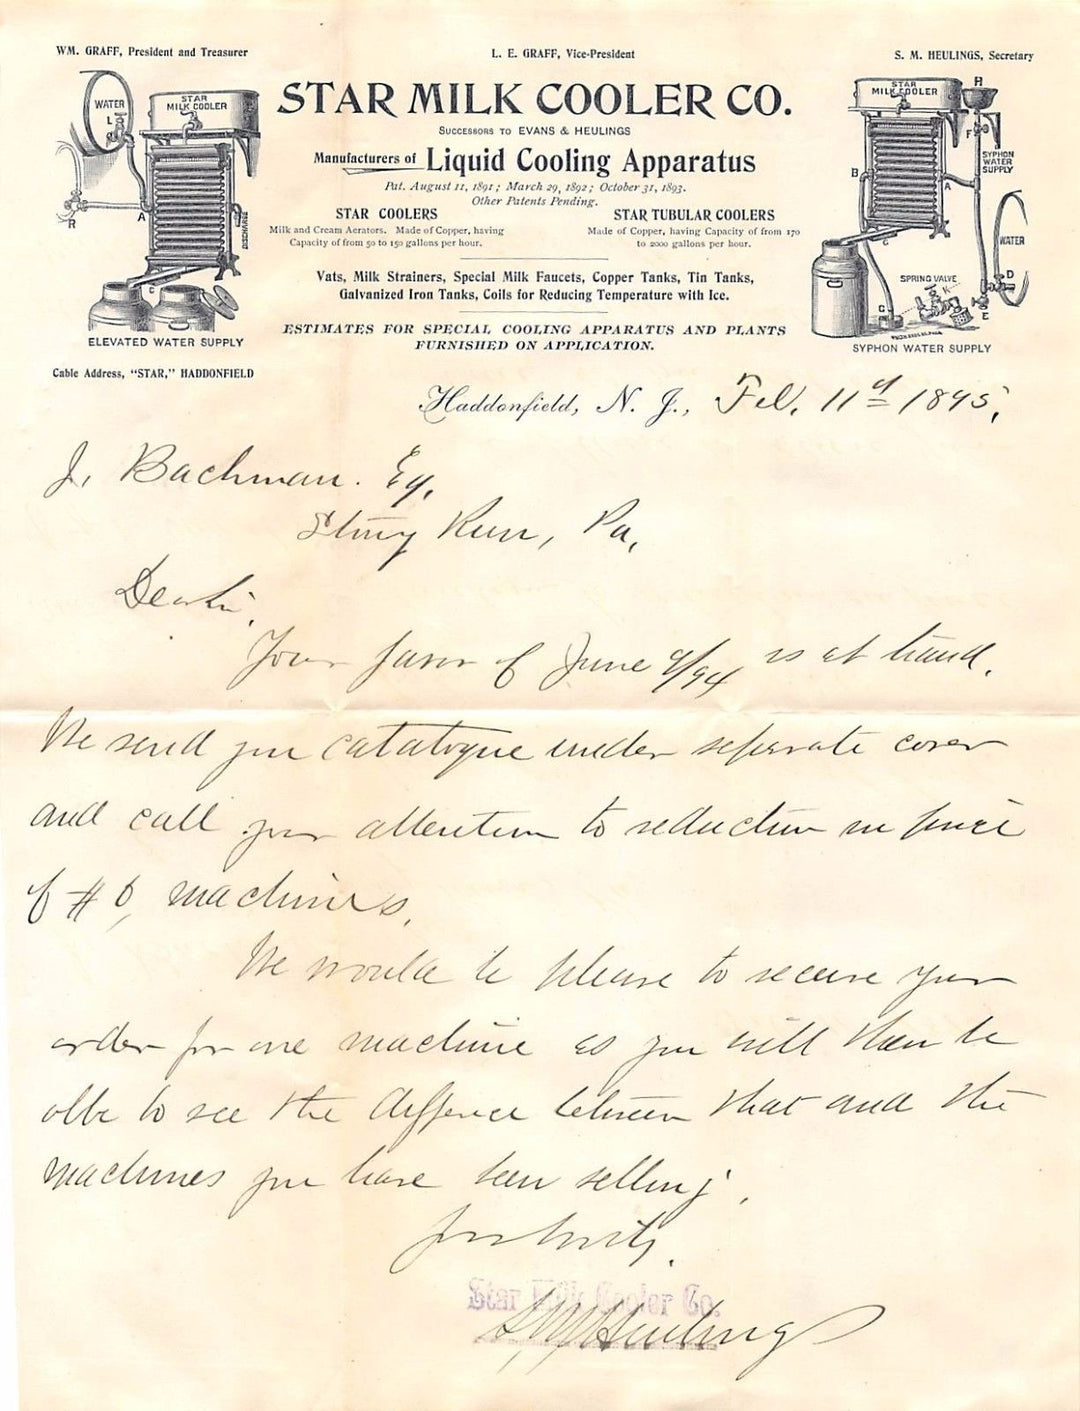 WM. GRAFF, President and Treasurer
L. E. GRAFF, Vice-President
S. M. HEULINGS, Secretary
WATER
L
STAR
MILK COOLER
A
R
C
ELEVATED WATER SUPPLY
Cable Address, "STAR," HADDONFIELD
STAR MILK COOLER CO.
SUCCESSORS TO EVANS & HEULINGS
Manufacturers of Liquid Cooling Apparatus
Pat. August 11, 1891; March 29, 1892; October 31, 1893.
Other Patents Pending.
STAR COOLERS
Milk and Cream Aerators. Made of Copper, having
Capacity of from 50 to 150 gallons per hour.
STAR TUBULAR COOLERS
Made of Copper, having Capacity of from 170
to 2000 gallons per hour.
Vats, Milk Strainers, Special Milk Faucets, Copper Tanks, Tin Tanks,
Galvanized Iron Tanks, Coils for Reducing Temperature with Ice.
ESTIMATES FOR SPECIAL COOLING APPARATUS AND PLANTS
FURNISHED ON APPLICATION.
STAR
MILK COOLER
H
F
SYPHON
WATER
SUPPLY
B
A
C
WATER
SPRING VALVE
K
D
G
E
SYPHON WATER SUPPLY
Haddonfield, N. J., Feb. 11th 1895,
J. Bachman. Esq,
Stony Run, Pa,
Dear Sir,
Your favor of June 9/94 is at hand.
We send you catatogue under seperate cover
and call your attention to reduction in price
of # 6, machines.
We would be please to secure your
order for one machine as you will then be
able to see the differnce between that and the
machines you have been selling.
Yours truly,
Star Milk Cooler Co.
S M Heulings